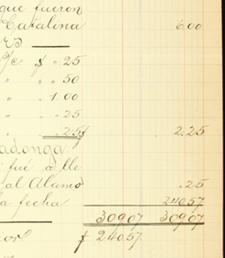 que fueron
Catalina 6.00
P/c $ .25
" " .50
" " 1.00
" " .25
" " .25 $ 2.25
adonga
fué a lle
al Alamo .25
a fecha 240.57
309.07 309.07
$ 240.57